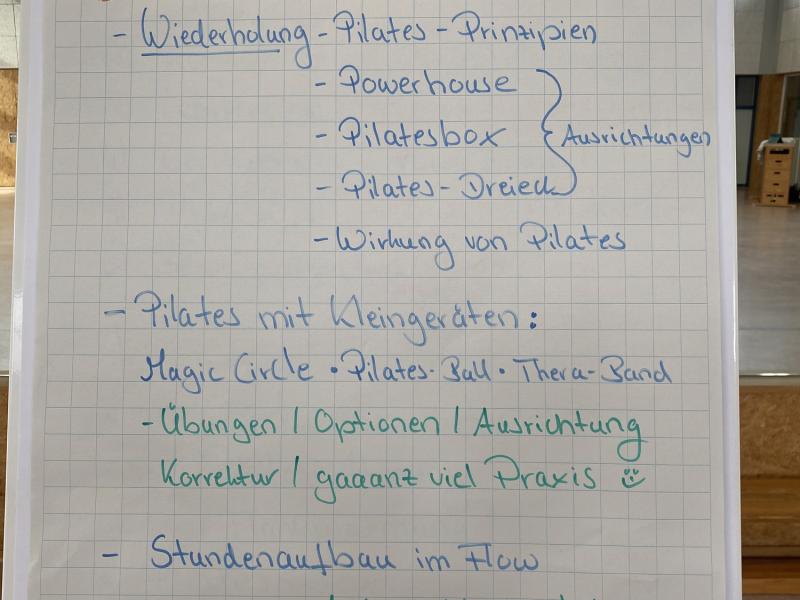 - Wiederholung - Pilates - Prinzipien
- Powerhouse
- Pilatesbox } Ausrichtungen
- Pilates - Dreieck
- Wirkung von Pilates
- Pilates mit Kleingeräten:
Magic Circle • Pilates-Ball • Thera-Band
- Übungen / Optionen / Ausrichtung
Korrektur / gaaanz viel Praxis ☺
- Stundenaufbau im Flow